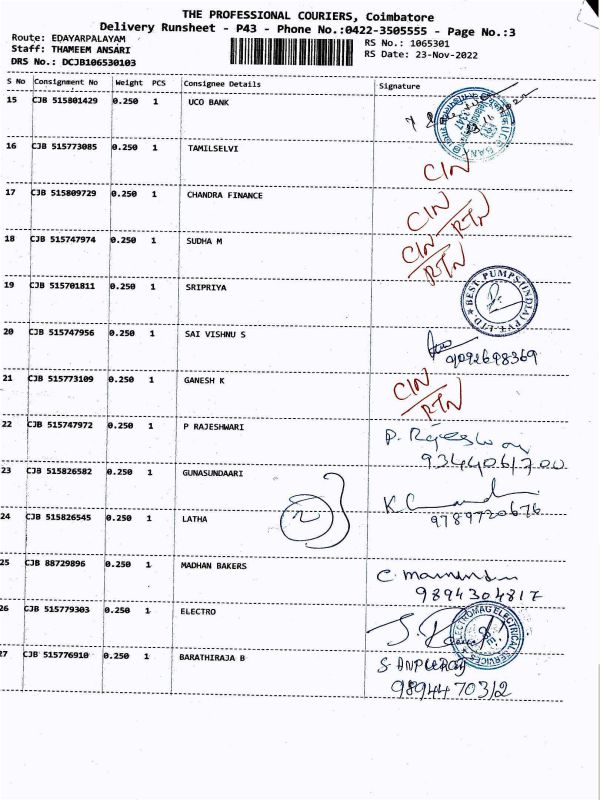 THE PROFESSIONAL COURIERS, Coimbatore
Delivery Runsheet - P43 - Phone No.:0422-3505555 - Page No.:3
Route: EDAYARPALAYAM
RS No.: 1065301
Staff: THAMEEM ANSARI
RS Date: 23-Nov-2022
DRS No.: DCJB106530103
S No Consignment No Weight PCS Consignee Details Signature
15 CJB 515801429 0.250 1 UCO BANK
16 CJB 515773085 0.250 1 TAMILSELVI
CIN
17 CJB 515809729 0.250 1 CHANDRA FINANCE
CIN/RTN
18 CJB 515747974 0.250 1 SUDHA M
CIN/RTN
19 CJB 515701811 0.250 1 SRIPRIYA
BEST PUMPS (INDIA) PVT LTD
20 CJB 515747956 0.250 1 SAI VISHNU S
9092698369
21 CJB 515773109 0.250 1 GANESH K
CIN/RTN
22 CJB 515747972 0.250 1 P RAJESHWARI
P. Rajeswari
9344061700
23 CJB 515826582 0.250 1 GUNASUNDAARI
24 CJB 515826545 0.250 1 LATHA
9789720676
25 CJB 88729896 0.250 1 MADHAN BAKERS
9894304817
26 CJB 515779303 0.250 1 ELECTRO
ELECTROMAG ELECTRICAL SERVICES
27 CJB 515776910 0.250 1 BARATHIRAJA B
9894470312